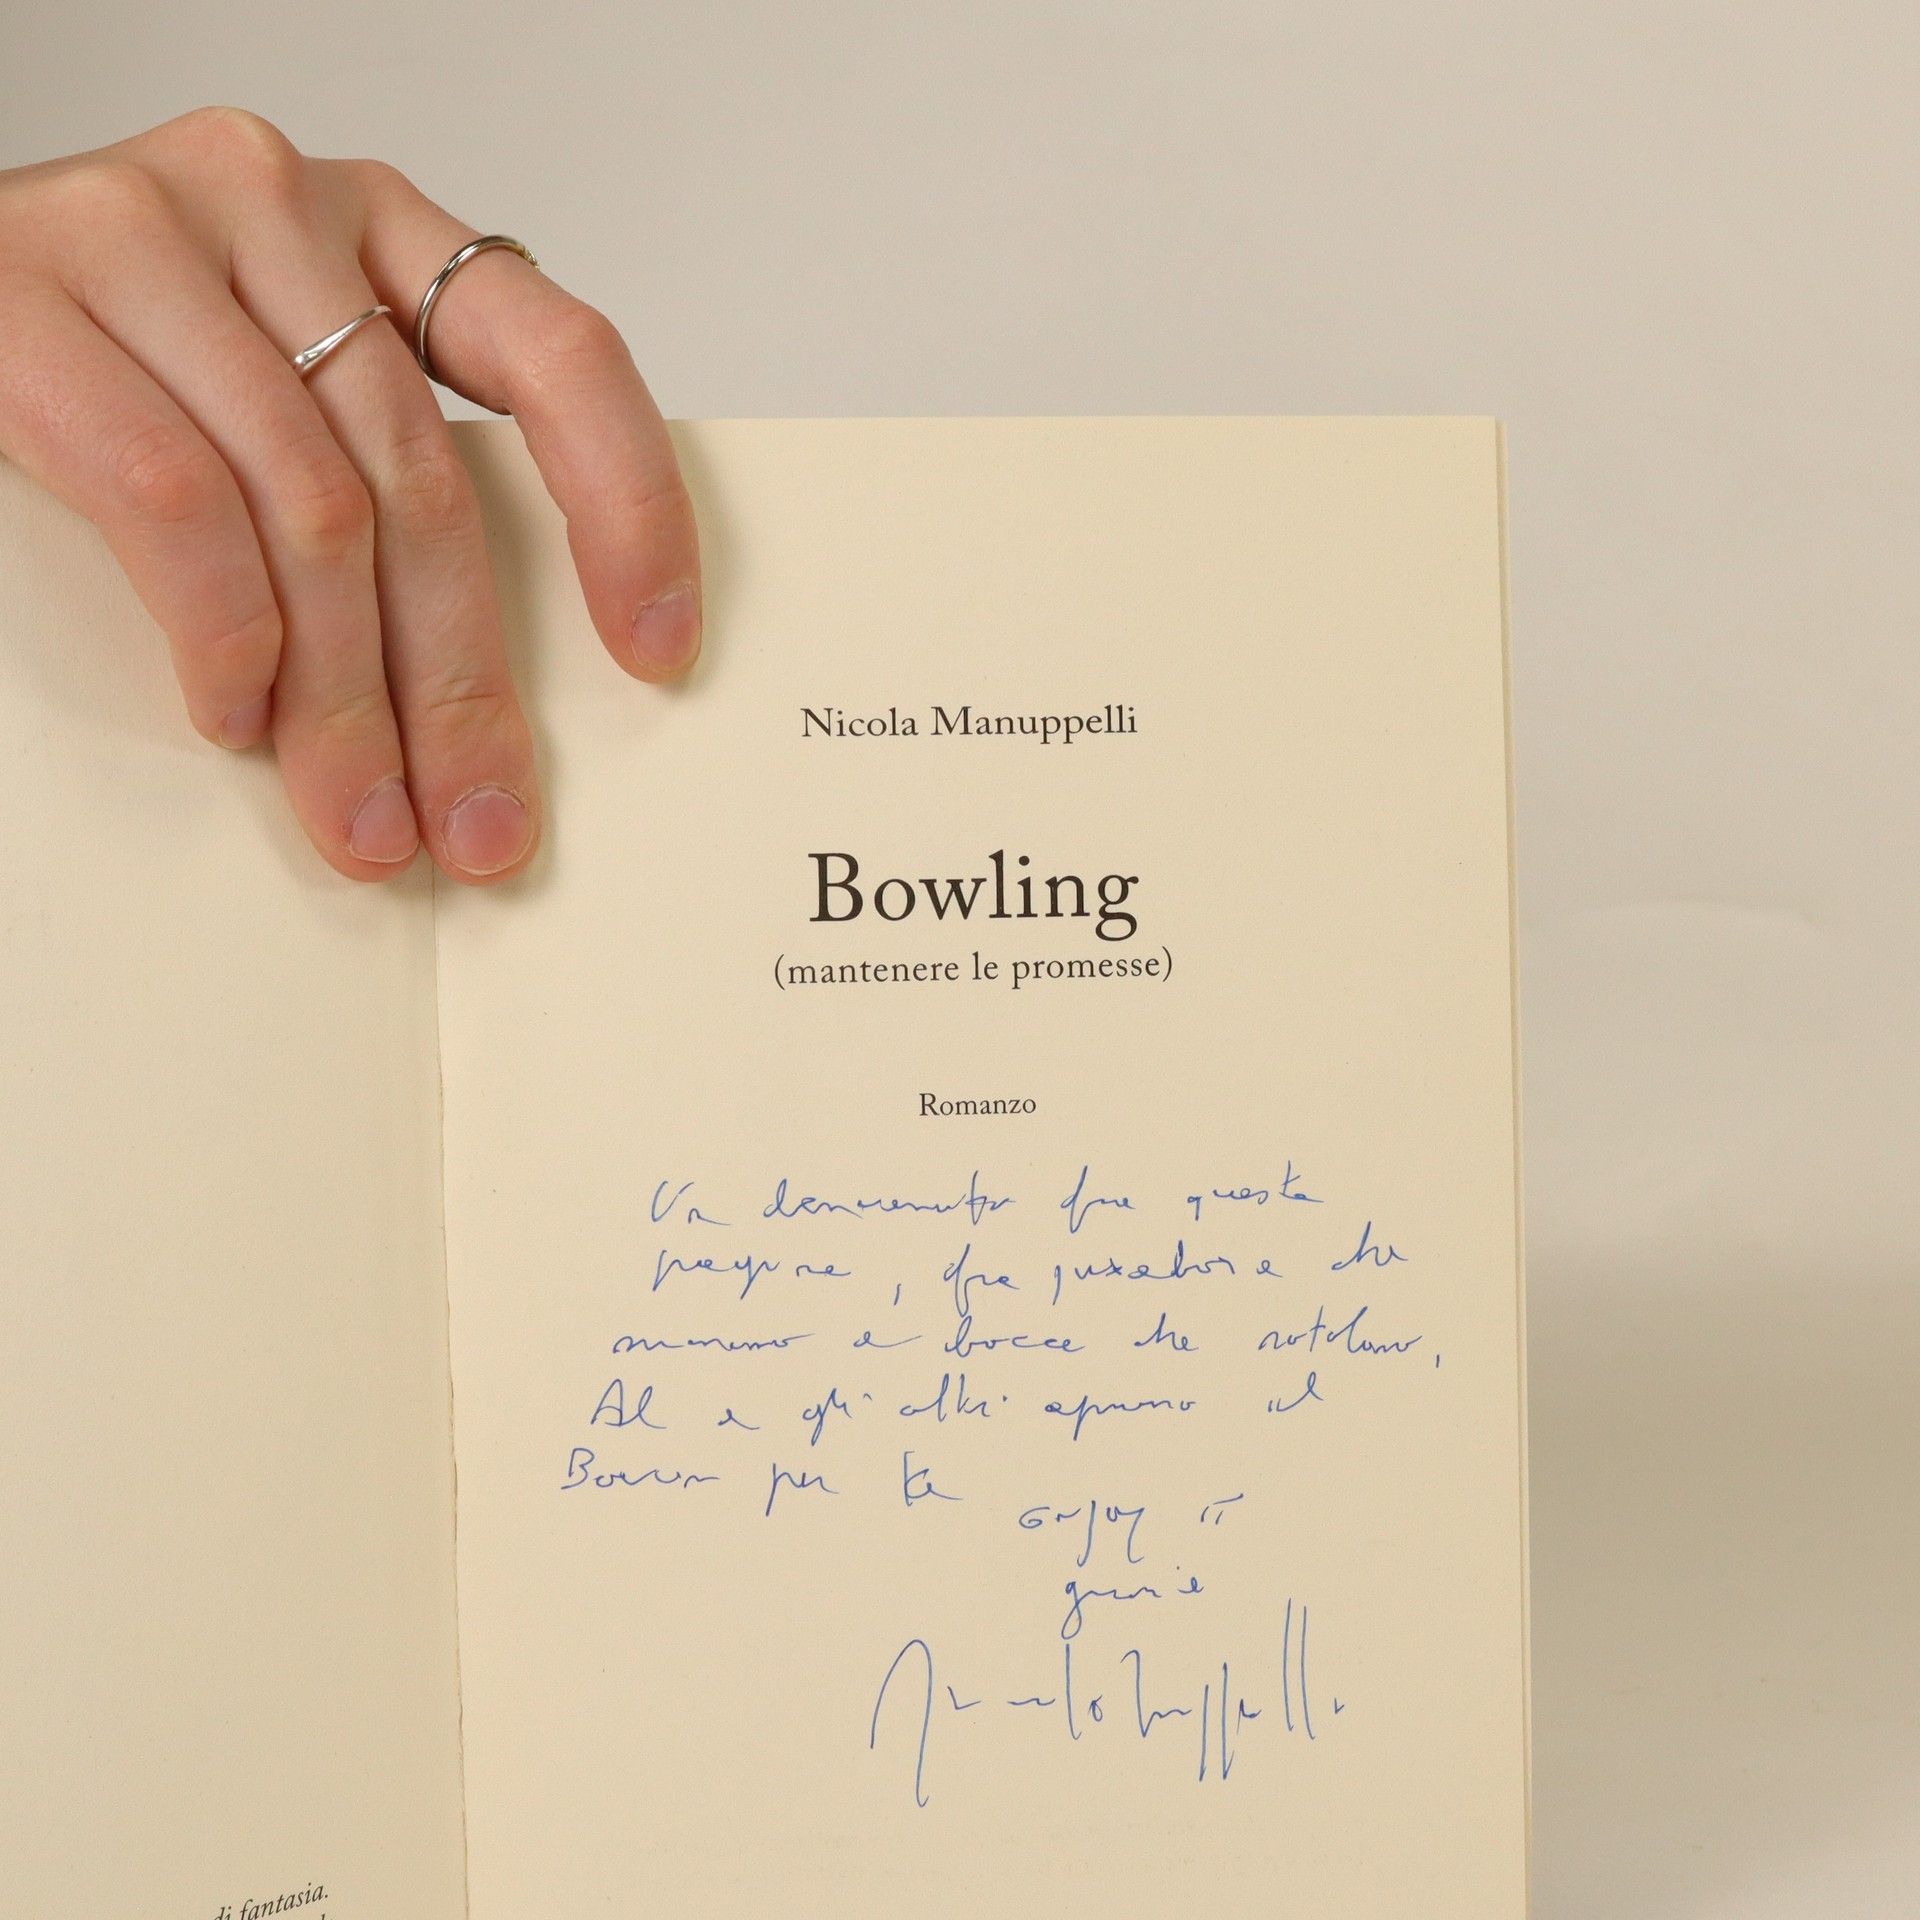 Nicola Manuppelli
Bowling
(mantenere le promesse)
Romanzo
Un benvenuto fra queste
pagine, fra jukebox e che
a bocce che rotolano,
Al e gli altri aprono il
per te
Enjoy it
grazie
Nicola Manuppelli
di fantasia.